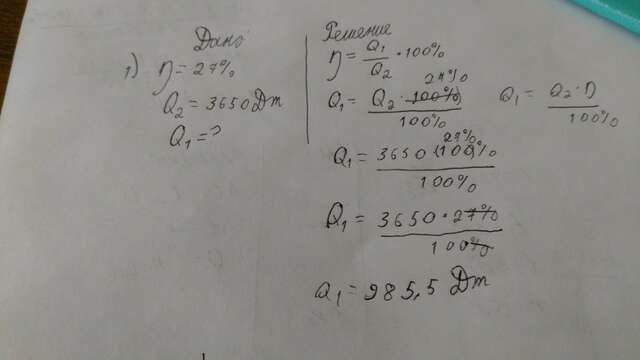 Дано
1) η = 27%
Q₂ = 3650 Dm
Q₁ = ?
Решение
η = Q₁/Q₂ · 100%
27%
Q₁ = Q₂ · 100%/100%
Q₁ = Q₂ · η/100%
27%
Q₁ = 3650 (100)%/100%
Q₁ = 3650 · 27%/100%
Q₁ = 985,5 Dm